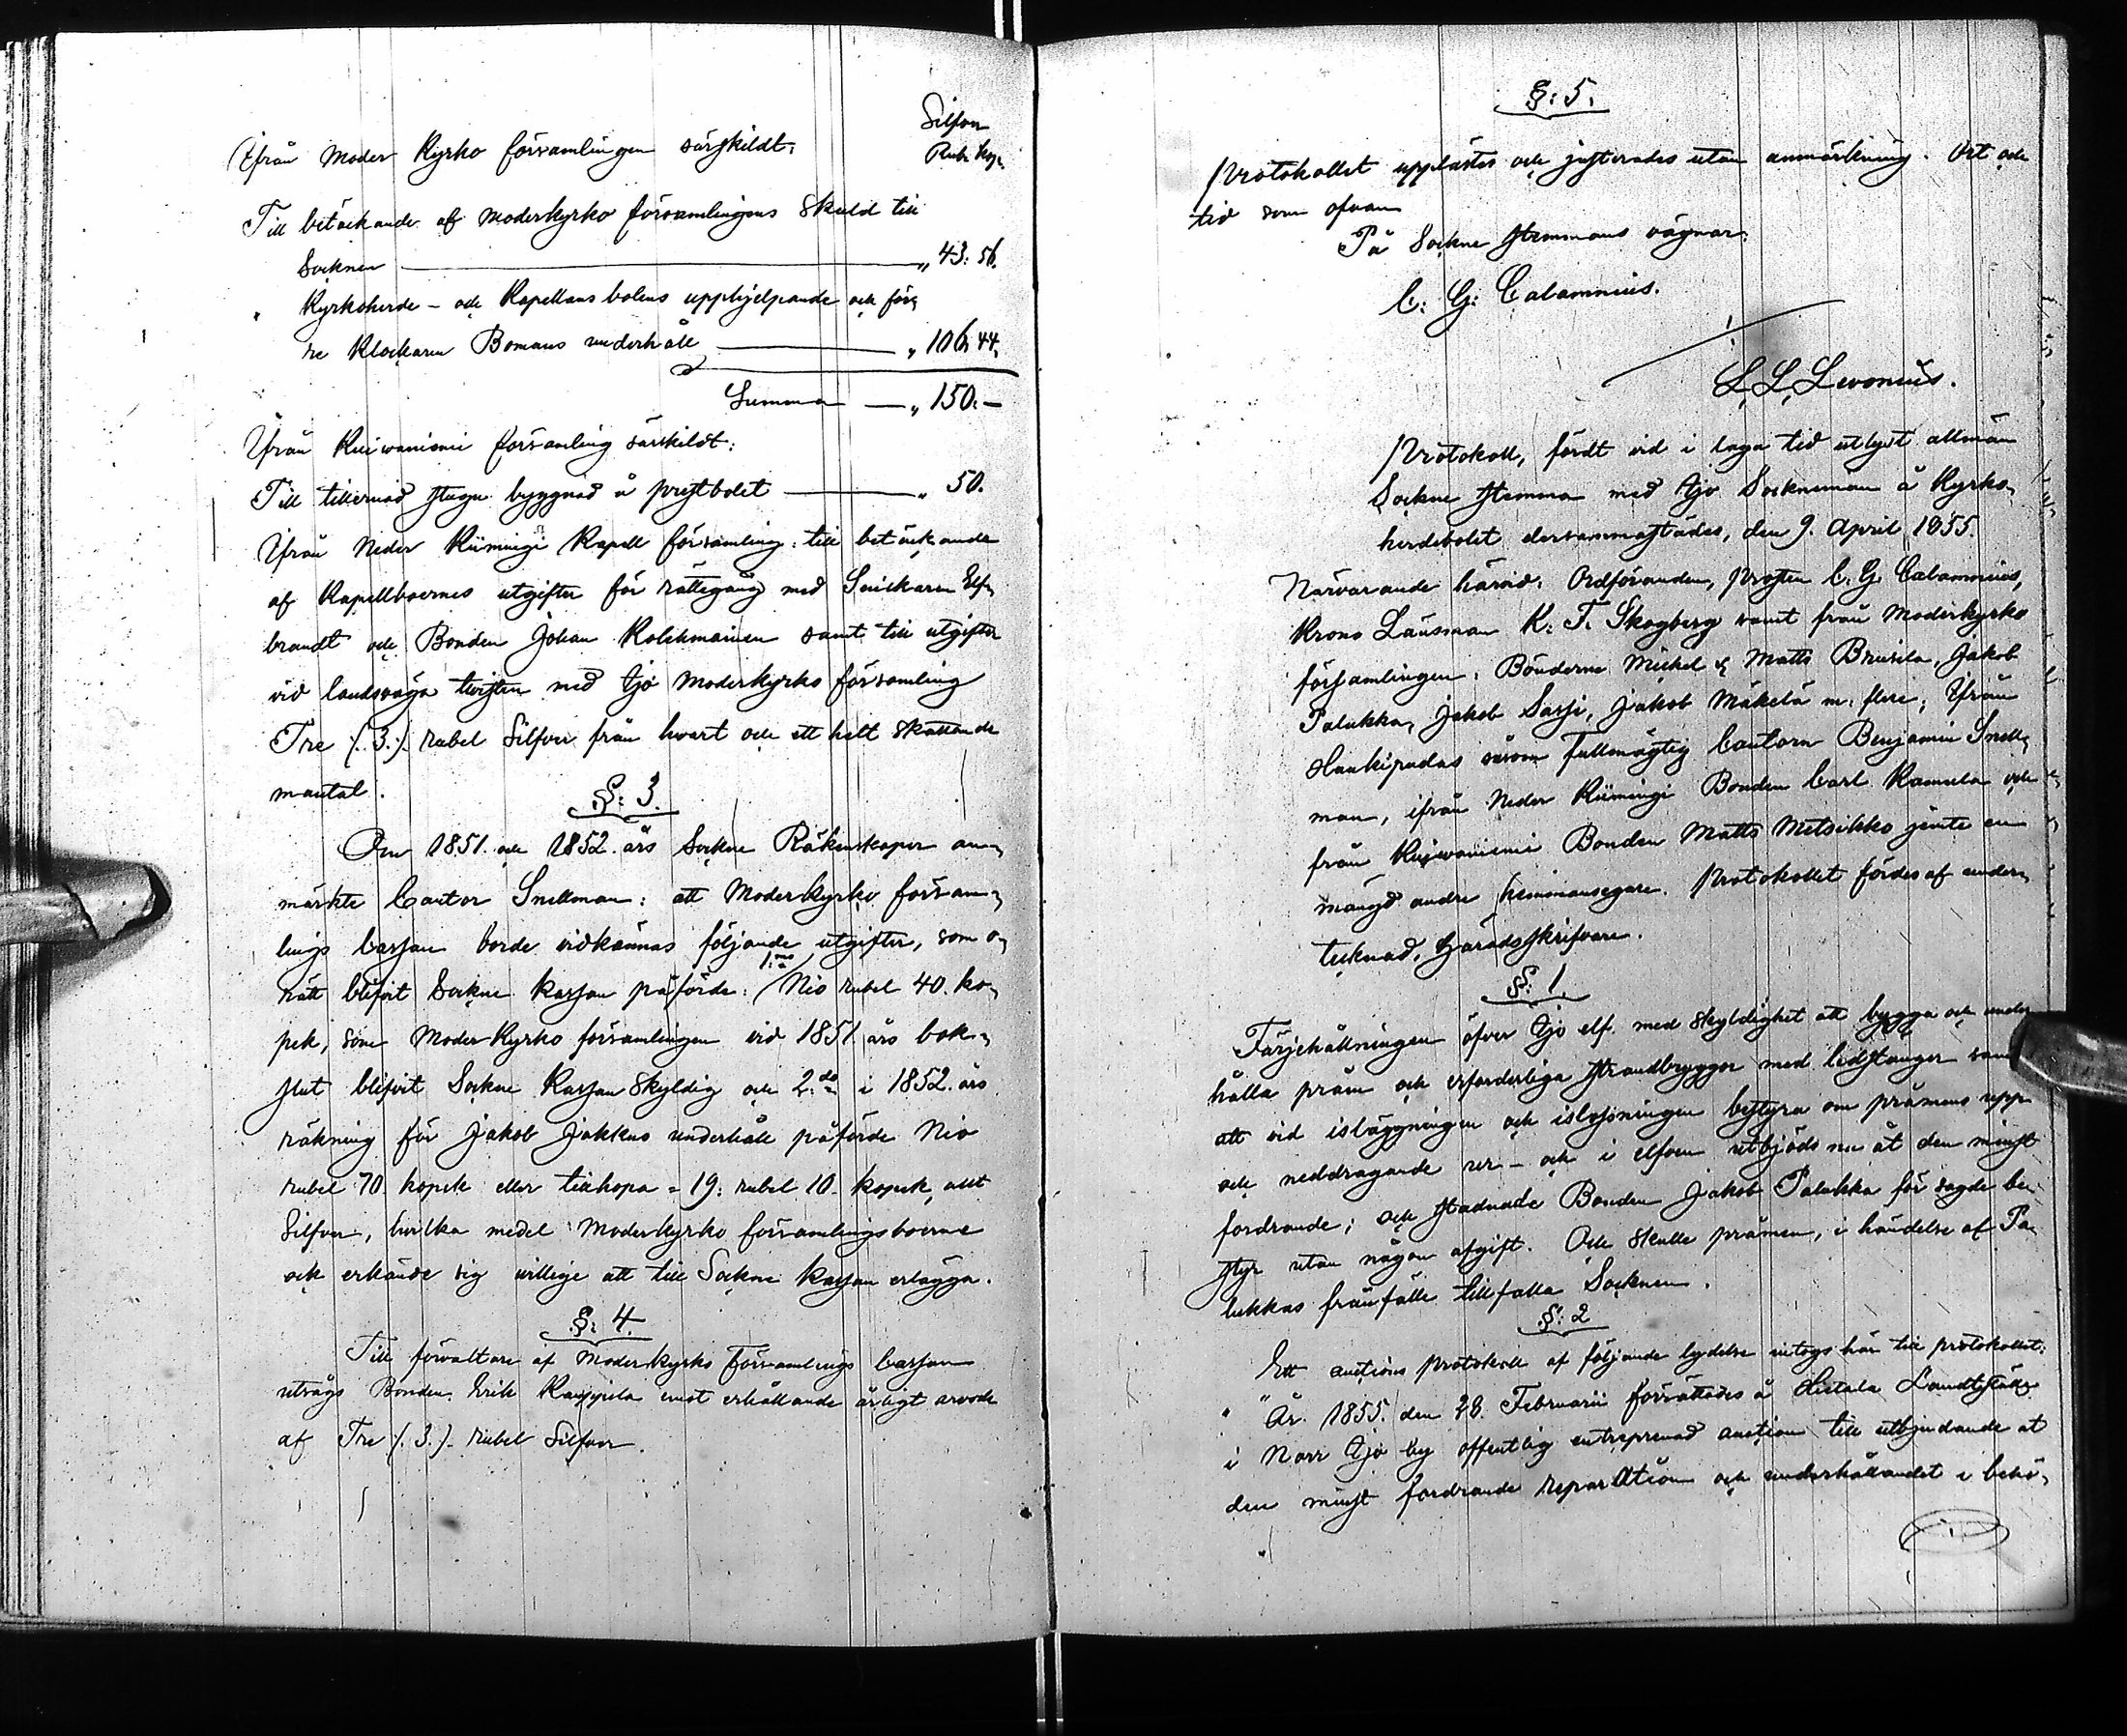 Silfver
Ifrån Moder Kyrko församlingen särskildt: Rub. Kop.
Till betäckande af Moderkyrko församlingens skuld till
Socknen — „ 43: 56.
„ Kyrkoherde- och Kapellans bolens upphjelpande och för
re Klockaren Bomans underhåll — „ 106: 44.
Summa — „ 150: —
Ifrån Kuivaniemi församling särskildt:
Till tillernad stugu byggnad å prestbolet — „ 50.
Ifrån Neder Kiimingi Kapell församling: till betäckande
af Kapellboernes utgifter för rättegång med Snickaren Elf-
brandt och Bonden Johan Kolehmainen samt till utgifter
vid landsväga twisten med Ijo Moderkyrko församling
Tre (. 3.). rubel Silfver från hwart och ett helt skattande
mantal.
§: 3.
Om 1851. och 1852. års Sockne Räkenskaper an-
märkte Cantor Snellman: att Moderkyrko försam-
lings Cassan borde vidkännas följande utgifter, som o-
rätt blifvit Sockne kassan påförde: 1:mo Nio rubel 40. ko-
pek, som Moderkyrko församlingen vid 1851. års bok-
slut blifvit Sockne Kassan skyldig och 2:do i 1852. års
räkning för Jakob Jakkus underhåll påförde Nio
rubel 70. kopek eller tillhopa = 19: rubel 10. kopek, allt
Silfver, hvilka medel Moderkyrko församlingsboerne
ock erkände sig willige att till Sockne kassan erlägga.
§: 4.
Till förvaltare af Moderkyrko Församlings Cassan
utsågs Bonden Erik Kauppila emot erhållande årligt arvode
af Tre (. 3.). rubel Silfver.
§: 5.
Protokollet upplästes och justerades utan anmärkning. Ort och
tid som ofvan
På Sockne stemmans vägnar:
C: G: Calamnius.
L. L. Levonius.
Protokoll, fördt vid i laga tid utlyst allmän
Sockne stemma med Ijo Socknemän å Kyrko-
herdebolet dersammastädes, den 9. April 1855.
Närvarande härvid: Ordföranden, Prosten C: G: Calamnius,
Krono Länsman K: F. Skogberg samt från Moderkyrko
församlingen: Bönderne Michel & Matts Brusila, Jakob
Palukka, Jakob Sassi, Jakob Mäkelä m: flere; Ifrån
Haukipudas såsom Fullmägtig Cantorn Benjamin Snell-
man, ifrån Neder Kiimingi Bonden Carl Kamula och
från Kuivaniemi Bonden Matts Metsikkö jemte en
mängd andre hemmansegare. Protokollet fördes af under-
tecknad, Häradsskrifvare.
§: 1.
Färjehållningen öfver Ijo elf. med skyldighet att bygga och under
hålla pråm och erforderliga strandbryggor med ledstänger samt
att vid isläggningen och islossningen bestyra om pråmens upp
och neddragande ur- och i elfven utbjöds nu åt den minst
fordrande; och stadnade Bonden Jakob Palukka för sagde be-
styr utan någon afgift. Och skulle pråmen, i händelse af Pa-
lukkas frånfälle tillfalla Socknen.
§: 2
Ett auctions protokoll af följande lydelse intogs här till protokollet:
„ „ År 1855. den 28. Februarii förrättades å Hietala Landtställe
i Norr Ijo by offentlig entreprenad auction till utbjudande åt
den minst fordrande reparation och underhållandet i behö-